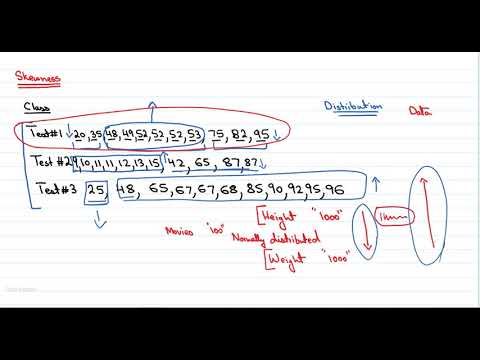 Skewness
Class
Distribution
Data
Test#1 ↓ 20, 35, 48, 49, 52, 52, 52, 53, 75, 82, 95 ↓
Test #2 9, 10, 11, 11, 12, 13, 15, 42, 65, 87, 87 ↓
Test #3 25, 48, 65, 67, 67, 68, 85, 90, 92, 95, 96 ↑
[Height "1000"
Movies "100" Normally distributed
[Weight "1000"